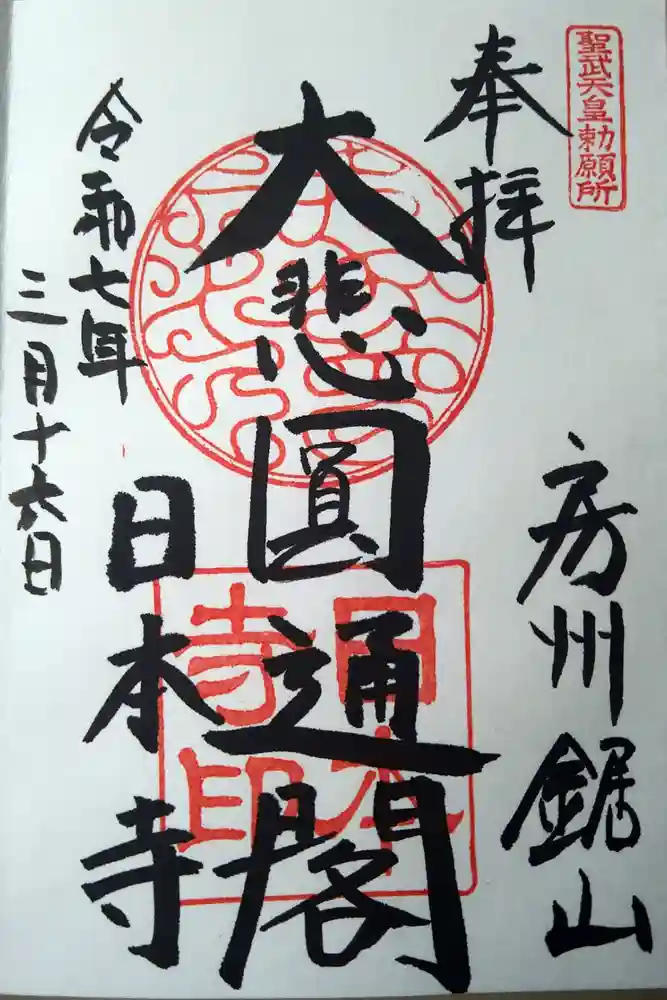 聖武天皇勅願所
奉拝
房州鋸山
大悲圓通閣
日本寺印
日本寺
令和七年
三月十六日